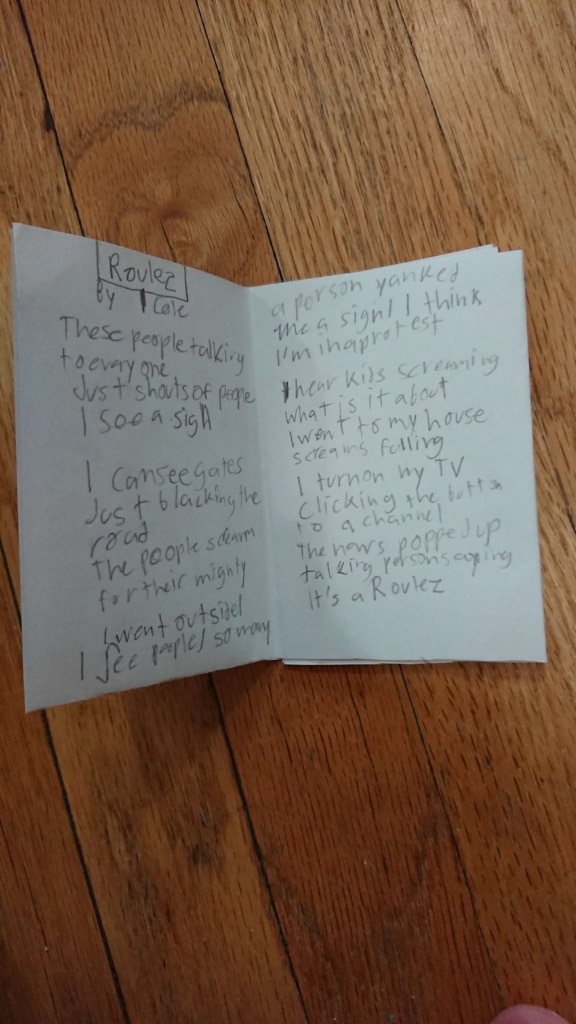 Roulez
By Cole
These people talking
to every one
Just shouts of people
I see a sign
I can see gates
Just blacking the
road
The people scearm
for their mighty
I went outside!
I see people! so many
a person yanked
me a sign! I think
I'm in a protest
I hear kids screaming
what is it about
I went to my house
screams falling
I turn on my TV
Clicking the button
to a channel
The news popped up
talking person saying
It's a Roulez